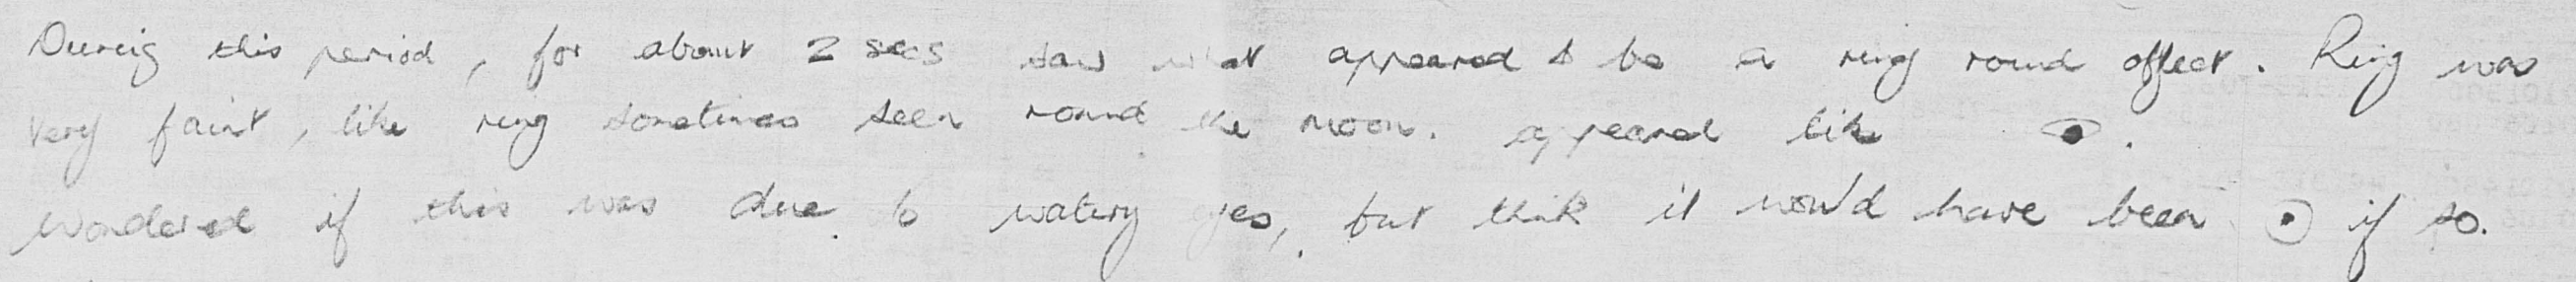 During this period, for about 2 secs saw what appeared to be a ring round effect. Ring was
very faint, like ring sometimes seen round the moon. appeared like .
Wondered if this was due to watery eyes, but think it would have been if so.